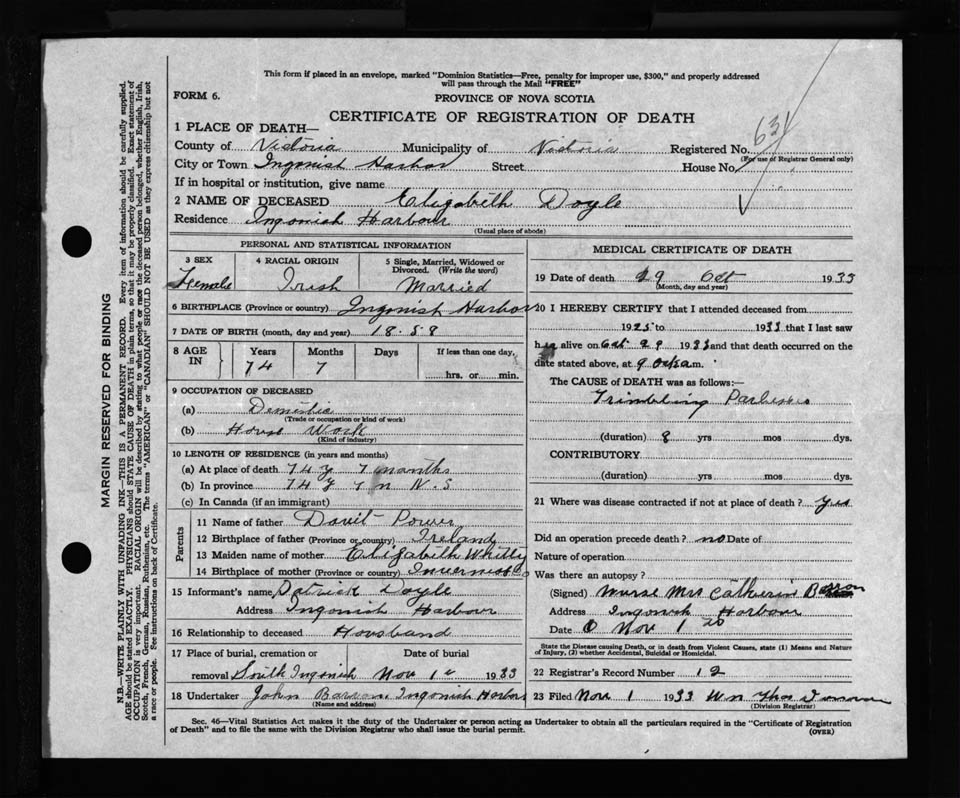 This form if placed in an envelope, marked "Dominion Statistics—Free, penalty for improper use, $300," and properly addressed
will pass through the Mail "FREE"
FORM 6.
PROVINCE OF NOVA SCOTIA
CERTIFICATE OF REGISTRATION OF DEATH
1 PLACE OF DEATH—
County of Victoria Municipality of Victoria Registered No. 631
(For use of Registrar General only)
City or Town Ingonish Harbor Street House No.
If in hospital or institution, give name
2 NAME OF DECEASED Elizabeth Doyle
Residence Ingonish Harbour
(Usual place of abode)
PERSONAL AND STATISTICAL INFORMATION
3 SEX 4 RACIAL ORIGIN 5 Single, Married, Widowed or
Divorced. (Write the word)
Female Irish Married
6 BIRTHPLACE (Province or country) Ingonish Harbor
7 DATE OF BIRTH (month, day and year) 18.58
8 AGE IN Years Months Days If less than one day,
74 7 hrs. or min.
9 OCCUPATION OF DECEASED
(a) Demistic
(Trade or occupation or kind of work)
(b) House Work
(Kind of industry)
10 LENGTH OF RESIDENCE (in years and months)
(a) At place of death 74 y 7 months
(b) In province 74 y 7 m N.S
(c) In Canada (if an immigrant)
Parents
11 Name of father Davit Power
12 Birthplace of father (Province or country) Ireland
13 Maiden name of mother Elizabeth Whitty
14 Birthplace of mother (Province or country) Inverness Co
15 Informant's name Patrick Doyle
Address Ingonish Harbour
16 Relationship to deceased Housband
17 Place of burial, cremation or Date of burial
removal South Ingonish Nov 1st 1933
18 Undertaker John Barron Ingonish Harbor
(Name and address)
MEDICAL CERTIFICATE OF DEATH
19 Date of death 29 Oct 1933
(Month, day and year)
20 I HEREBY CERTIFY that I attended deceased from
1925 to 1933 that I last saw
h alive on Oct 29 1933 and that death occurred on the
date stated above, at 9 ocka m.
The CAUSE of DEATH was as follows:—
Trimbling
(duration) 8 yrs mos dys.
CONTRIBUTORY
(duration) yrs mos dys.
21 Where was disease contracted if not at place of death? yes
Did an operation precede death? no Date of
Nature of operation
Was there an autopsy?
(Signed) Nurse Mrs Catherin Barron
Address Ingonish Harbour
Date Nov 1
State the Disease causing Death, or in death from Violent Causes, state (1) Means and Nature
of Injury, (2) whether Accidental, Suicidal or Homicidal.
22 Registrar's Record Number 12
23 Filed Nov 1 1933 Wm Thos
(Division Registrar)
Sec. 46—Vital Statistics Act makes it the duty of the Undertaker or person acting as Undertaker to obtain all the particulars required in the "Certificate of Registration
of Death" and to file the same with the Division Registrar who shall issue the burial permit.
(OVER)
MARGIN RESERVED FOR BINDING
N.B.—WRITE PLAINLY WITH UNFADING INK—THIS IS A PERMANENT RECORD. Every item of information should be carefully supplied.
AGE should be stated EXACTLY. PHYSICIANS should STATE CAUSE OF DEATH in plain terms, so that it may be properly classified. Exact statement of
OCCUPATION is very important. RACIAL ORIGIN will be described by stating to what people or race the deceased person belonged, whether English, Irish,
Scotch, French, German, Russian, Ruthenian, etc. The terms "AMERICAN" or "CANADIAN" SHOULD NOT BE USED as they express citizenship but not
a race or people. See instructions on back of Certificate.